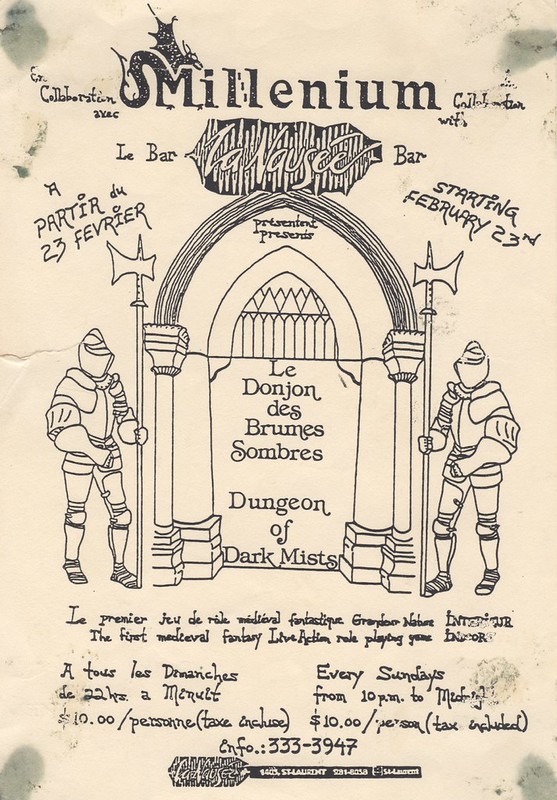 En
Collaboration
avec
Millenium
Collaboration
with
Le Bar
La Nausée
Bar
A
PARTIR du
23 FEVRIER
STARTING
FEBRUARY 23rd
présentent
presents
Le
Donjon
des
Brumes
Sombres
Dungeon
of
Dark Mists
Le premier jeu de rôle médiéval fantastique Grandeur Nature INTERIEUR
The first medieval fantasy Live Action role playing game INDOOR
A tous les Dimanches
de 22hrs. a Minuit
$10.00/personne(taxe incluse)
Every Sundays
from 10 p.m. to Midnight
$10.00/person(tax included)
info.: 333-3947
La Nausée 1403, ST-LAURENT 281-8038 St-Laurent